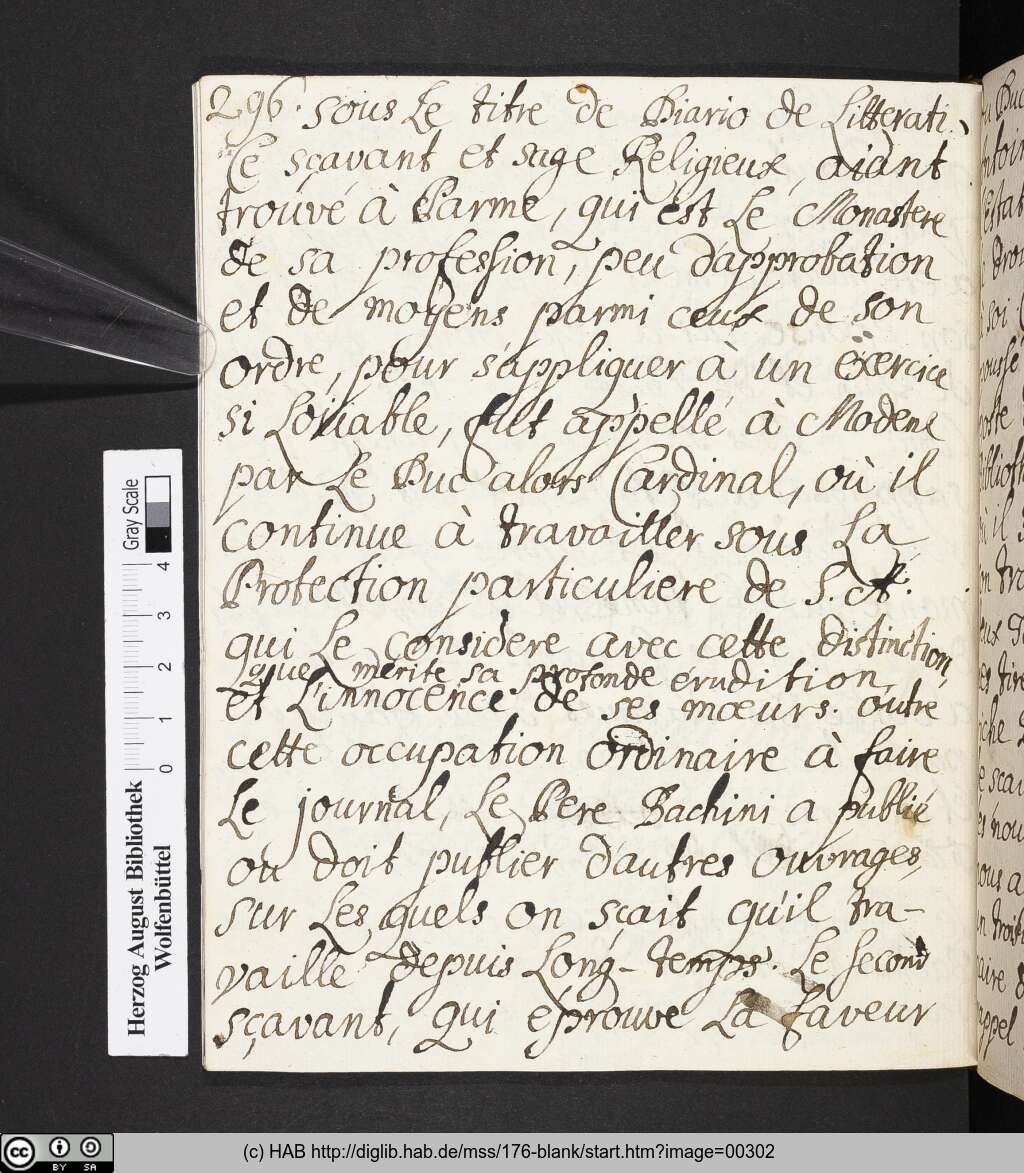 296. sous Le titre de Diario de Litterati.
Ce sçavant et sage Religieux, aiant
trouvé à Parme, qui est Le Monastere
de sa profession, peu d'approbation
et de moyens parmi ceux de son
ordre, pour s'appliquer à un exercice
si Loüable, fut appellé à Modene
par Le Duc alors Cardinal, où il
continue à travailler sous La
Protection particuliere de S. A.
qui Le considere avec cette distinction,
que merite sa profonde érudition,
et L'innocence de ses mœurs. outre
cette occupation ordinaire à faire
Le journal, Le Pere Bachini a publié
ou doit publier d'autres ouvrages,
sur Les quels on sçait qu'il tra-
vaille depuis Long-temps. Le second
sçavant, qui éprouve La faveur
Gray Scale
0 1 2 3 4
Herzog August Bibliothek
Wolfenbüttel
cc BY SA
(c) HAB http://diglib.hab.de/mss/176-blank/start.htm?image=00302